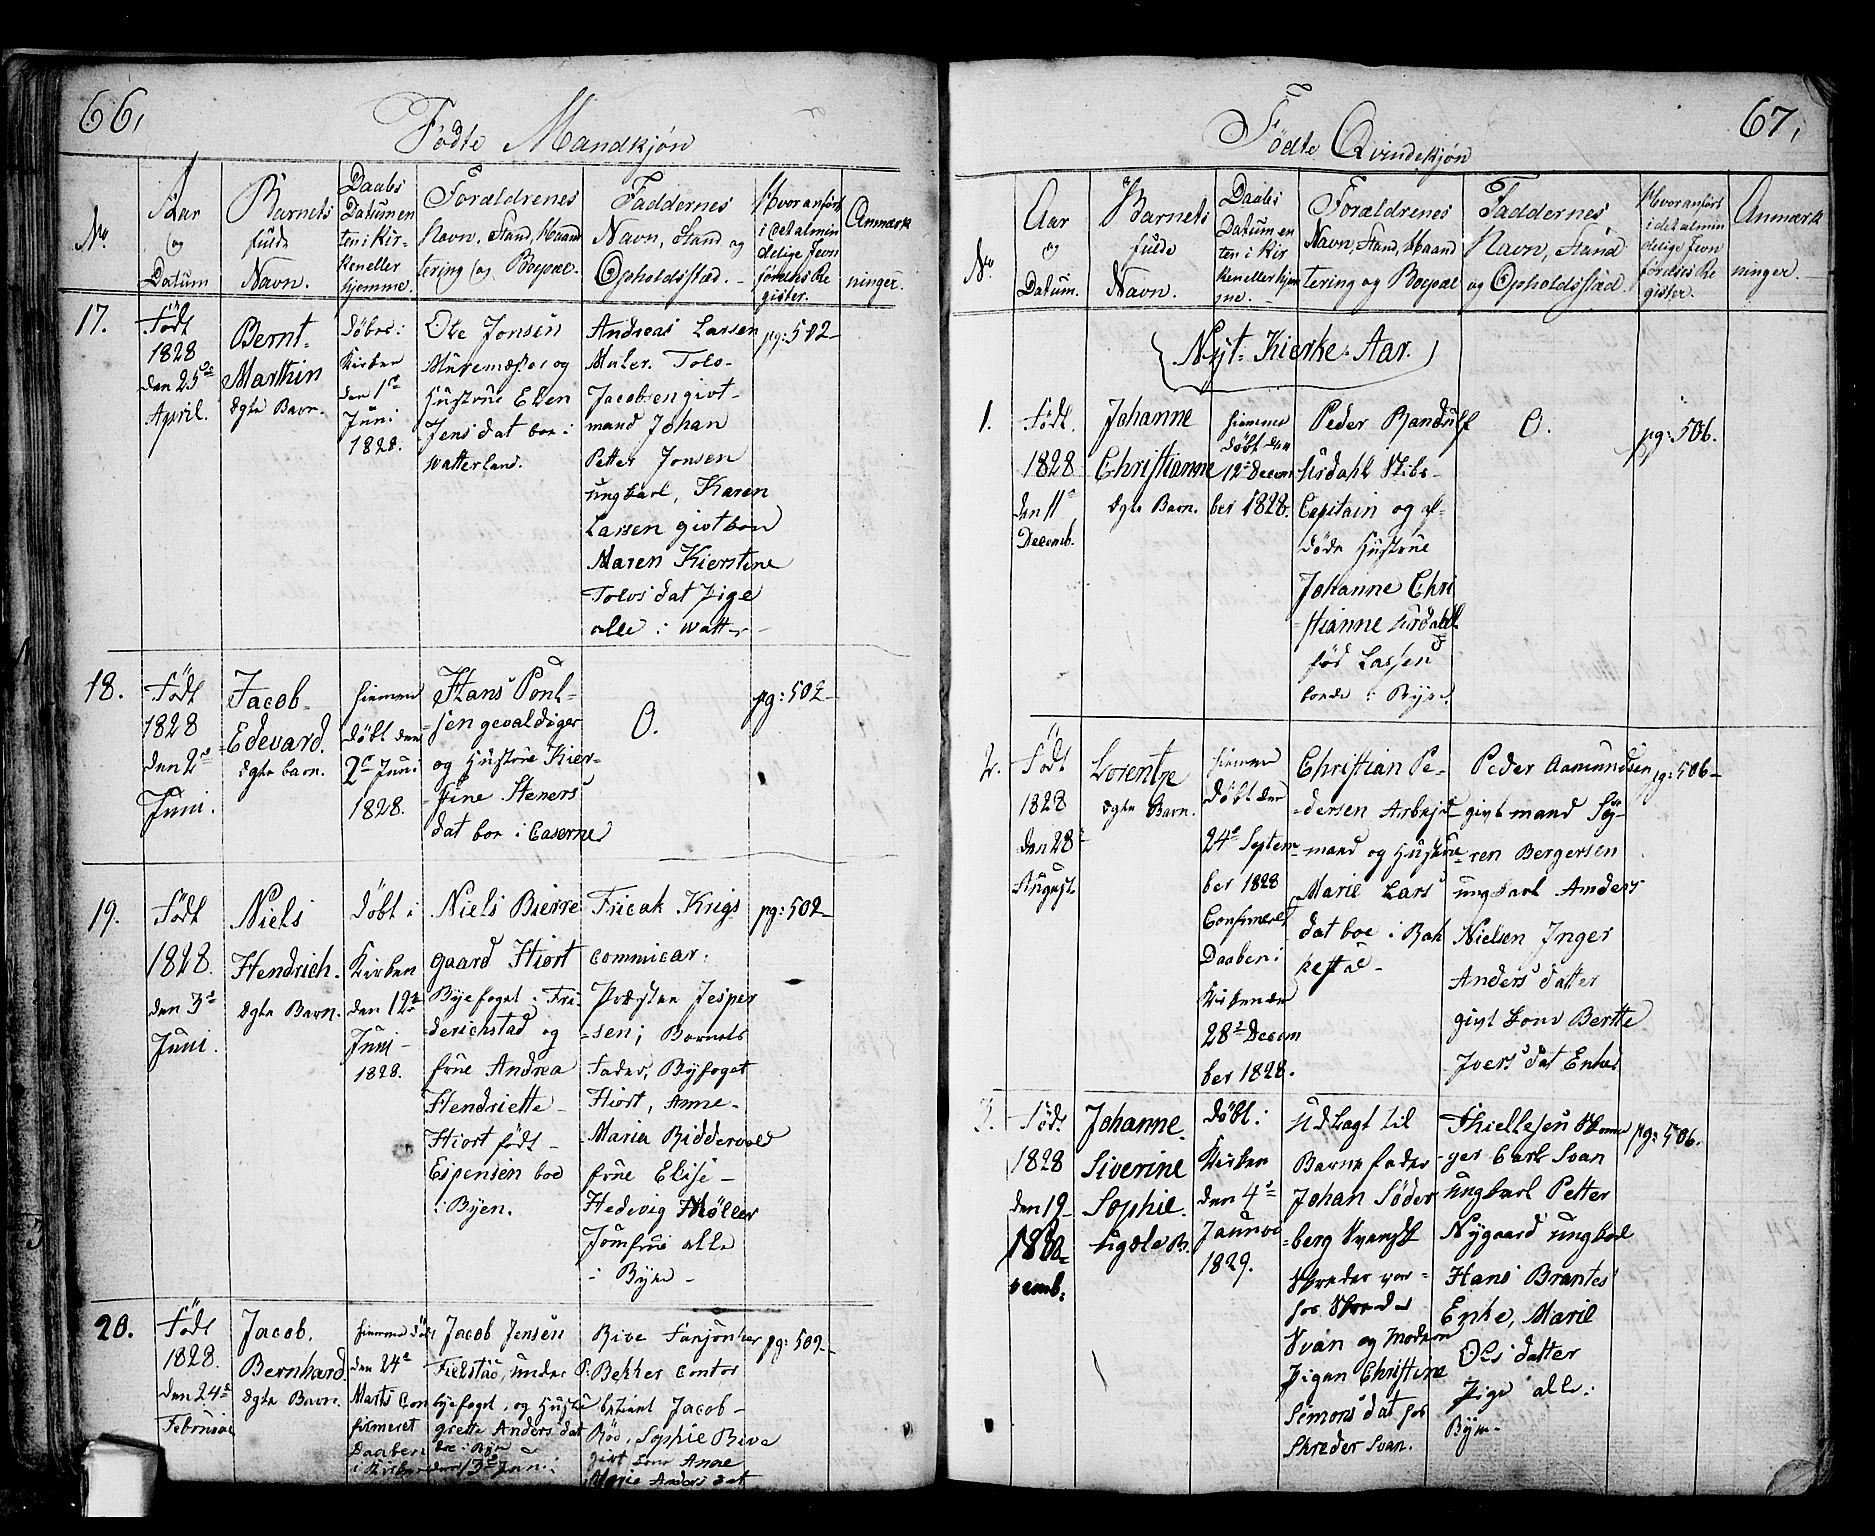 66,
Fødte Mandkjøn
No.
Aar
og
Datum
Barnets
fulde
Navn.
Daabs
Datumen
ten i Kir-
ken eller
hjemme.
Forældrenes
Navn, Stand, Haand
tering og Boepæl.
Faddernes
Navn, Stand og
Opholdsstæd.
Hvor anført
i det almin
delige Jevn
førelses Re
gister.
Anmærk
ninger.
17.
Født
1828
den 25de
April.
Bernt
Marthin
Egte Barn.
Døbt i
Kirken
den 1ste
Juni
1828.
Ole Jonsen
Muremester og
Hustrue Elen
Jens dat boe i
Watterland.
Andreas Larsen
Muler. Tolo-
Jacobsen givt-
mand Johan
Petter Jonsen
ungkarl, Karen
Larsen givt kon
Maren Kierstine
Tolos dat Pige
alle i Watter-
pg: 502-
18.
Født
1828
den 2d
Juni.
Jacob-
Edevard.
Egte barn.
hiemme
døbt den
2d Juni
1828.
Hans Poul-
sen gevaldiger
og Hustrue Kier-
stine Steners
dat boe i Caserne
O.
pg: 502-
19.
Født
1828.
den 3d
Juni.
Niels
Hendrich.
Egte Barn.
Døbt i
Kirken
den 12te
Juni-
1828.
Niels Bierre
gaard Hiort
Byefoget i Fri
derichstad og
frue Andrea
Hendriette-
Hiort født-
Espensen boe
i Byen.
Krigs
commicar:
Præsten Jesper
-sen; Barnets
Fader, Byfoget
Hiort, Anne-
Maria Riddervold
frue Elise-
Hedevig Møller
Jomfrue alle
i Byen-
pg: 502-
20.
Født
1828.
den 24de
Februar
Jacob.
Bernhard.
Egte Barn.
hiemme døbt
den 24de
Marts Con
firmeret
Daaben
i Kirken den 13de Juni
Jacob Jensen
Fielstad, under
byefoget, og Hustrue
Grette Anders dat
boe i Byen
Bekker Contor
betient Jacob-
Rød, Sophie Rive
givt kone Anne
Marie Anders dat
pg: 502-
67,
Fødte Qvindekjøn
No.
Aar
og
Datum.
Barnets
fulde
Navn.
Daabs
Datum en
ten i Kir
ken eller hjem
me.
Forældrenes
Navn, Stand, Haand
tering og Boepæl
Faddernes
Navn, Stand
og Opholdsstæd.
Hvor anført
i det almin
delige Jevn
førelses Re
gister.
Anmærk
ninger.
Nyt-Kierke-Aar.
1.
Født.
1828
den 11te
Decemb.
Johanne
Christianne
Egte Barn.
hiemme
døbt den
12te Decem
ber 1828.
Peder Randulf
Urdahl Skibs-
Capitain og af-
døde Hustrue
Johanne Chri
-stianne Urdahl
fød Lassen
boende i Byen.
O.
pg: 506.
2.
Født
1828
den 28de
August
Lorentze
Egte Barn.
hiemme
Døbt den
24de Septem
ber 1828
Confirmeret
Daaben i
Kirken den
28de Decem
ber 1828.
Christian Pe-
-dersen Arbejds
-mand og Hustrue
Marie Lars
dat boe i Bak
kestal-
Peder Aamundsen
givt mand Sø-
-ren Bergersen
ungkarl Anders
Nielsen Inger
Anders datter
givt kone Berthe
Ivers dat Enke
pg: 506-
3.
Født
1828
den 19-
vemb:
Johanne.
Siverine
Sophie.
Uægte B.
Døbt i
Kirken
den 4de
Januar
1829.
Udlagt til
Barne fader
Johan Söder
-berg Svensk
Skreder
hos Skreder
Svan og Moderen
Pigen Christine
Simons dat hos
Skreder Svan.
Carl Svan
ungkarl Petter
Nygaard ungkarl
Hans Brantes
Enke, Marie
Ols datter
Pige alle i
Byen-
pg: 506.